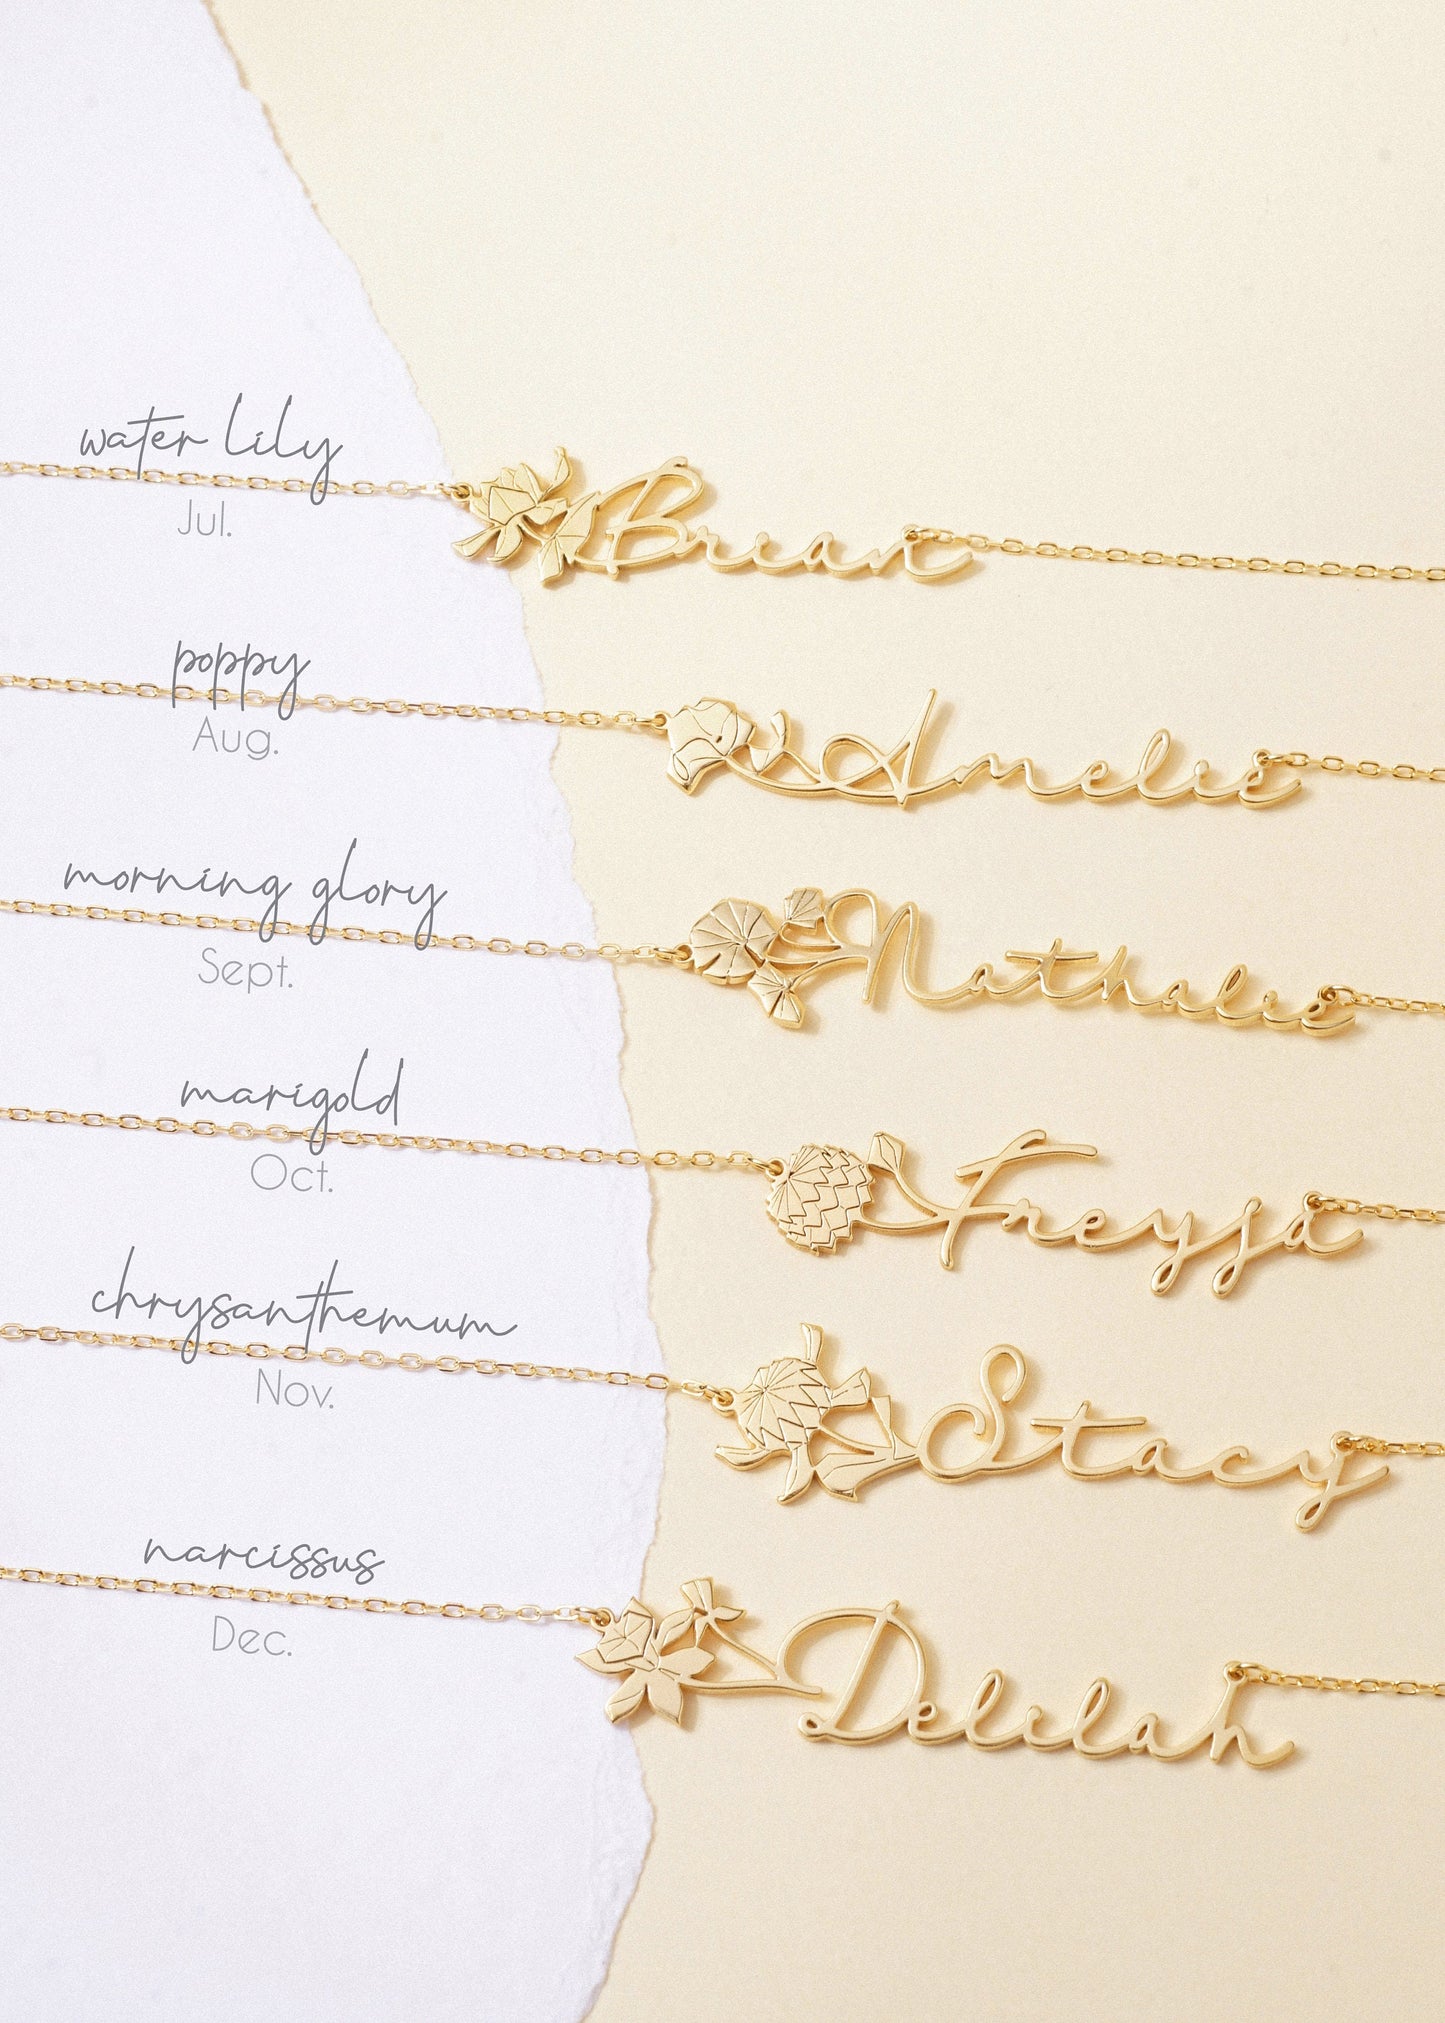 water lily
Jul.
Brian
poppy
Aug.
Amelie
morning glory
Sept.
Nathalie
marigold
Oct.
Freyja
chrysanthemum
Nov.
Stacy
narcissus
Dec.
Delilah